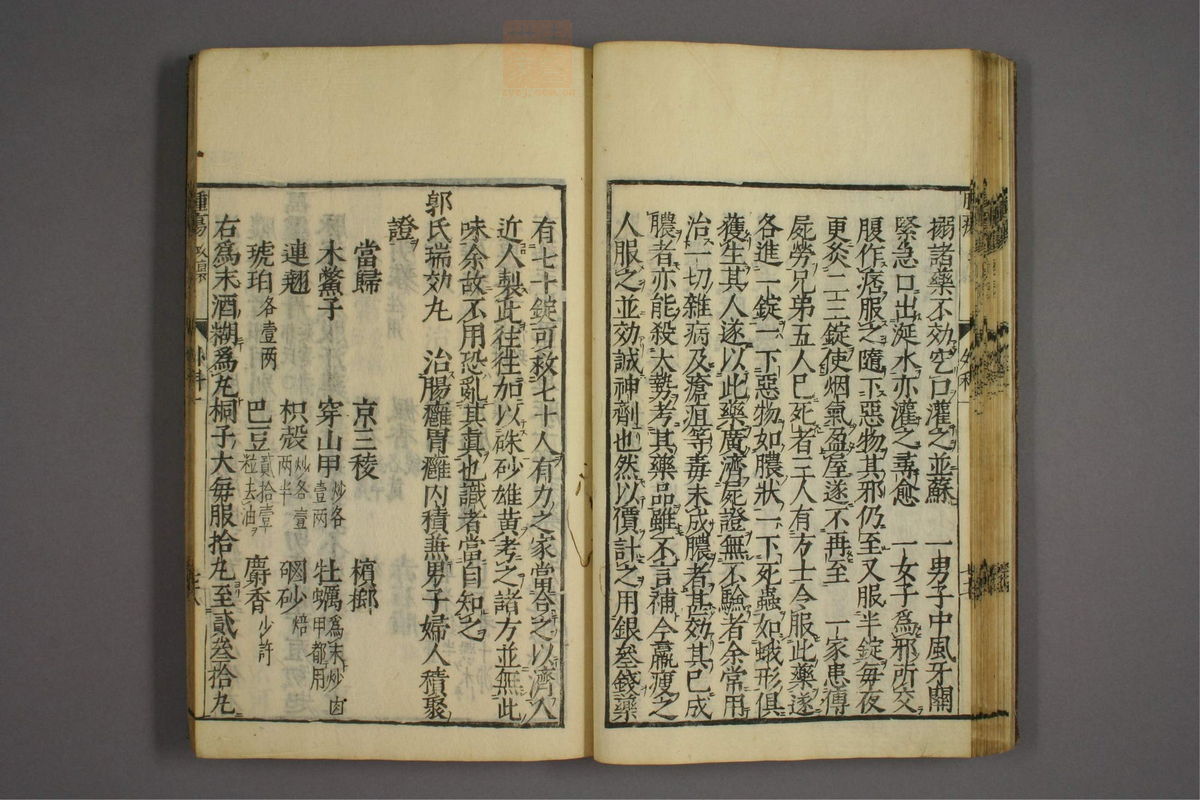 搦諸藥不効空口灌之並蘇　一男子中風牙關
緊急口出涎水亦灌之壽愈　一女子為邪所交
腹作痞服之隨下惡物其邪仍至又服半錠每夜
更灸二三錠使烟氣盈屋遂不再至　一家患傳
屍勞兄弟五人已死者三人有方士令服此藥遂
各進一錠一下惡物如膿狀一下死蟲如蛾形俱
獲生其人遂以此藥廣濟屍證無不驗者余常用
治一切雜病及瘡疽等毒未成膿者甚効其已成
膿者亦能殺大勢考其藥品雖不言補令羸瘦之
人服之並効誠神劑也然以價計之用銀叁錢藥
有七十錠可救七十人有力之家當合之以濟人
近人製此往往加以硃砂雄黃考之諸方並無此
味余故不用恐亂其真也識者當自知之
郭氏瑞効丸　治腸癰胃癰內積兼男子婦人積聚
證
當歸　京三稜　檳榔
木鱉子　穿山甲炒各壹兩　牡蠣為末炒卤甲都用
連翹　枳殼炒各壹兩半　硇砂焙
琥珀各壹兩　巴豆貳拾壹粒去油　麝香少許
右為末酒糊為丸桐子大每服拾丸至貳叁拾丸